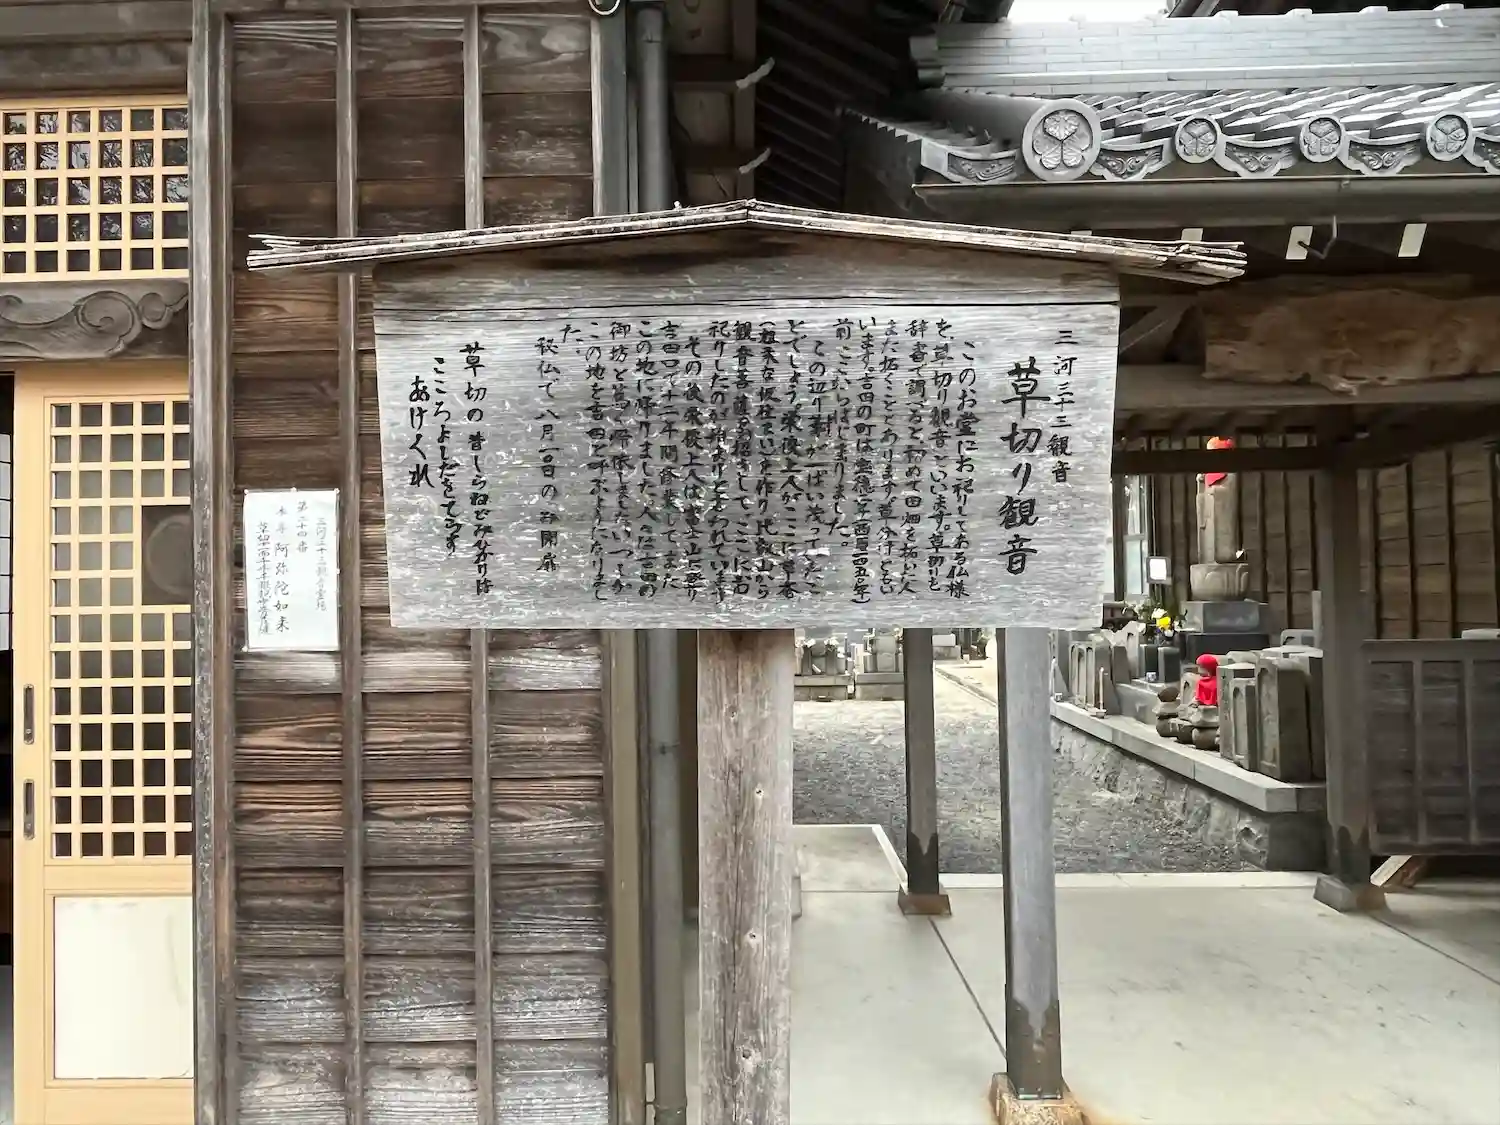 三河三十三観音
草切り観音
このお堂にお祀りしてある仏様
を、草切り観音といいます。草切りを
辞書で調べると「初めて田畑を拓いた人
また拓くこと」とあります。草分けともい
います。吉田の町は宝徳二年(西暦一四五〇年)
前、ここからはじまりました。
この辺り葦が一ぱい茂っていたこ
とでしょう。栄俊上人がここに草庵
(粗末な仮住まい)を作り比叡山から
観音菩薩をお招きして、ここにお
祀りしたのが始まりといわれています。
その後栄俊上人は富士山に登り
吉田口で十二年間修業して、また
この地に帰りました。人々は吉田の
御坊と篤く帰依しました。いつしか
この地を吉田と呼ぶようになりまし
た。
秘仏で、八月一〇日のみ開扉
草切の昔しらねどみひかりは
こころよしだをてらす
あけくれ
三河三十三観音霊場
第二十四番
本尊 阿弥陀如来
草切観音